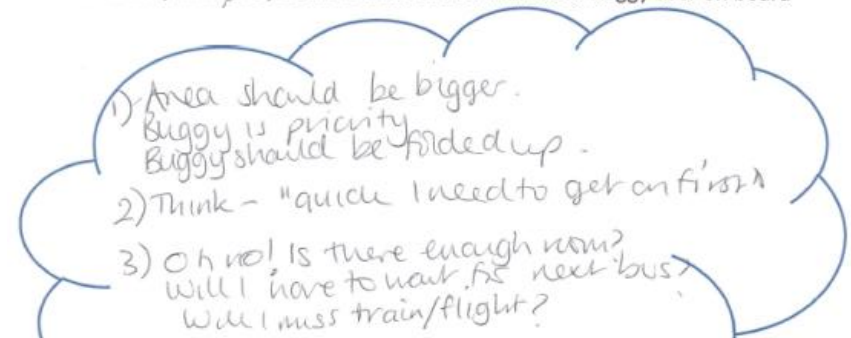 1) Area should be bigger.
Buggy is priority
Buggy should be folded up.
2) Think - "quick I need to get on first"
3) Oh no! Is there enough room?
Will I have to wait for next bus?
Will I miss train/flight?